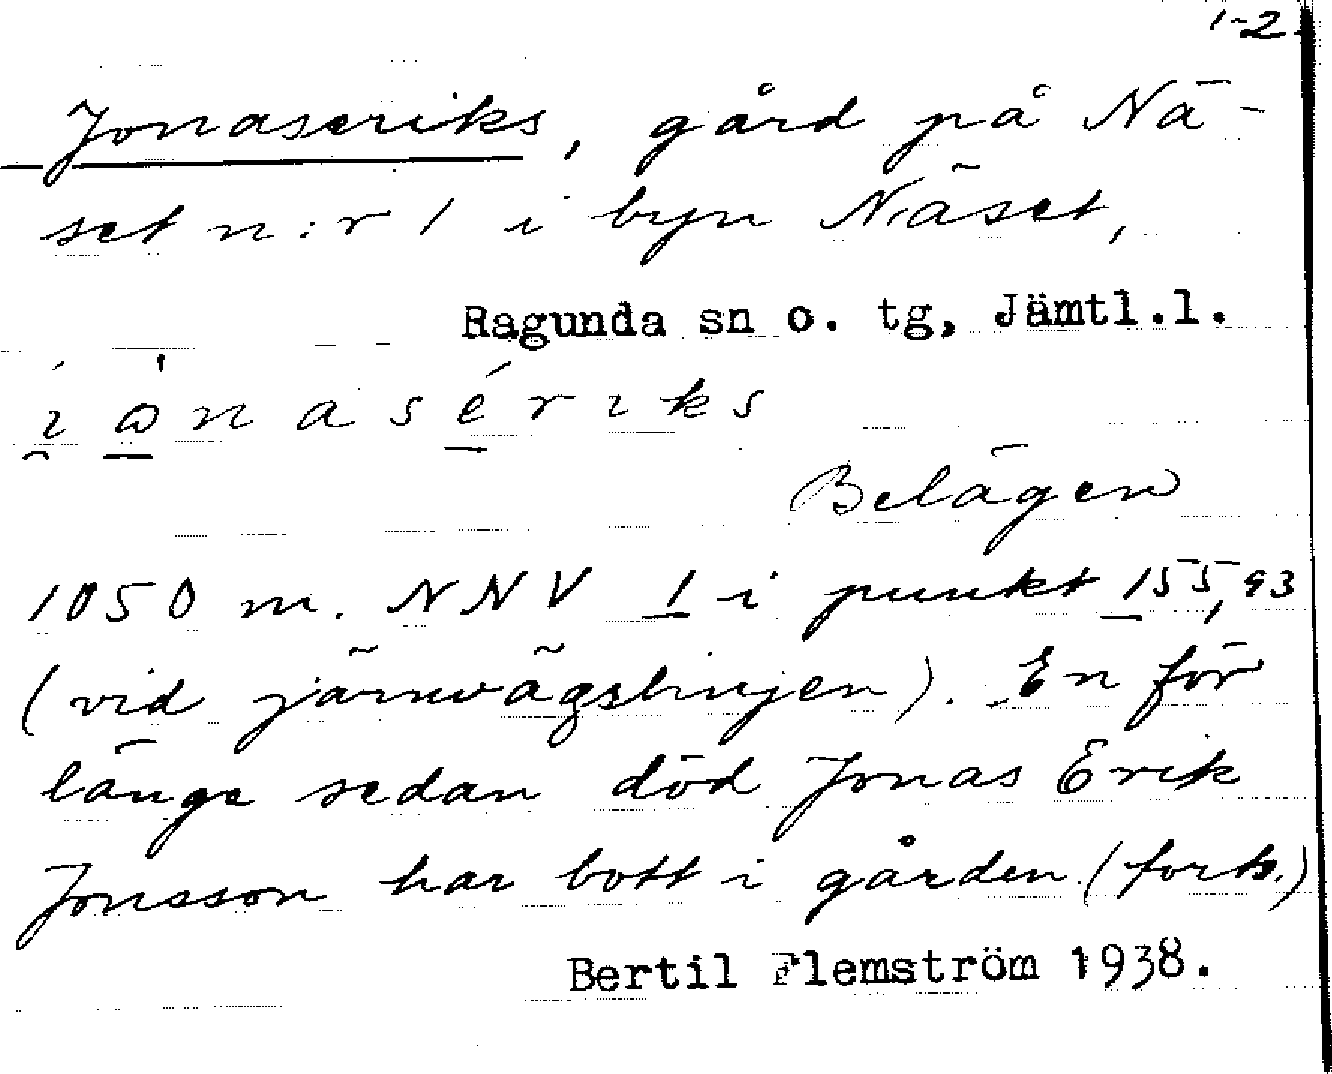 1-2.
Jonaseriks, gård på Nä-
set n:r 1 i byn Näset,
Ragunda sn o. tg, Jämtl.l.
i̯ ɷ̀ n a s é r ı k s
Belägen
1050 m. NNV 1 i punkt 155,93
(vid järnvägslinjen). En för
länge sedan död Jonas Erik
Jonsson har bott i gården. (forts.)
Bertil Flemström 1938.